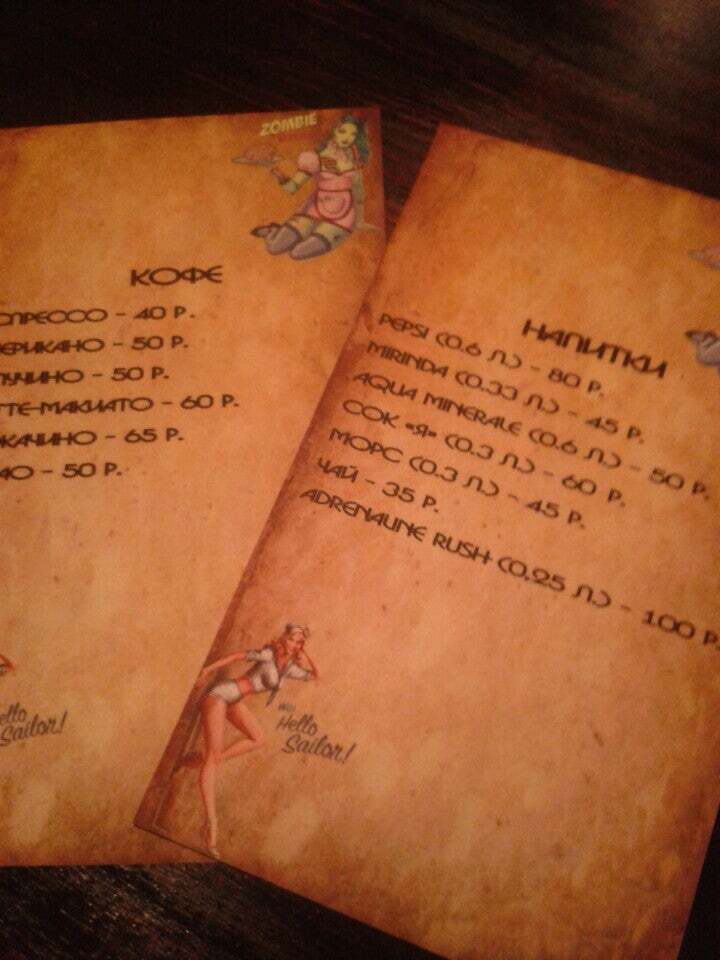 ZOMBIE
КОФЕ
СПРЕССО - 40 Р.
ЕРИКАНО - 50 Р.
ПУЧИНО - 50 Р.
ТТЕ-МАКИАТО - 60 Р.
КАЧИНО - 65 Р.
АО - 50 Р.
ello
Sailor!
НАПИТКИ
PEPSI (0.6 Л.) - 80 Р.
MIRINDA (0.33 Л.) - 45 Р.
AQUA MINERALE (0.6 Л.) - 50 Р.
СОК «Я» (0.3 Л.) - 60 Р.
МОРС (0.3 Л.) - 45 Р.
ЧАЙ - 35 Р.
ADRENALINE RUSH (0,25 Л.) - 100 Р.
Hello
Sailor!